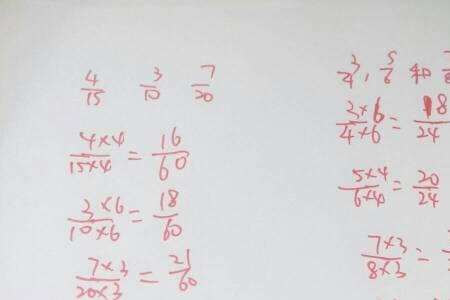 4/15 3/10 7/20
4×4/15×4 = 16/60
3×6/10×6 = 18/60
7×3/20×3 = 21/60
3/4, 5/6 和
3×6/4×6 = 18/24
5×4/6×4 = 20/24
7×3/8×3 =